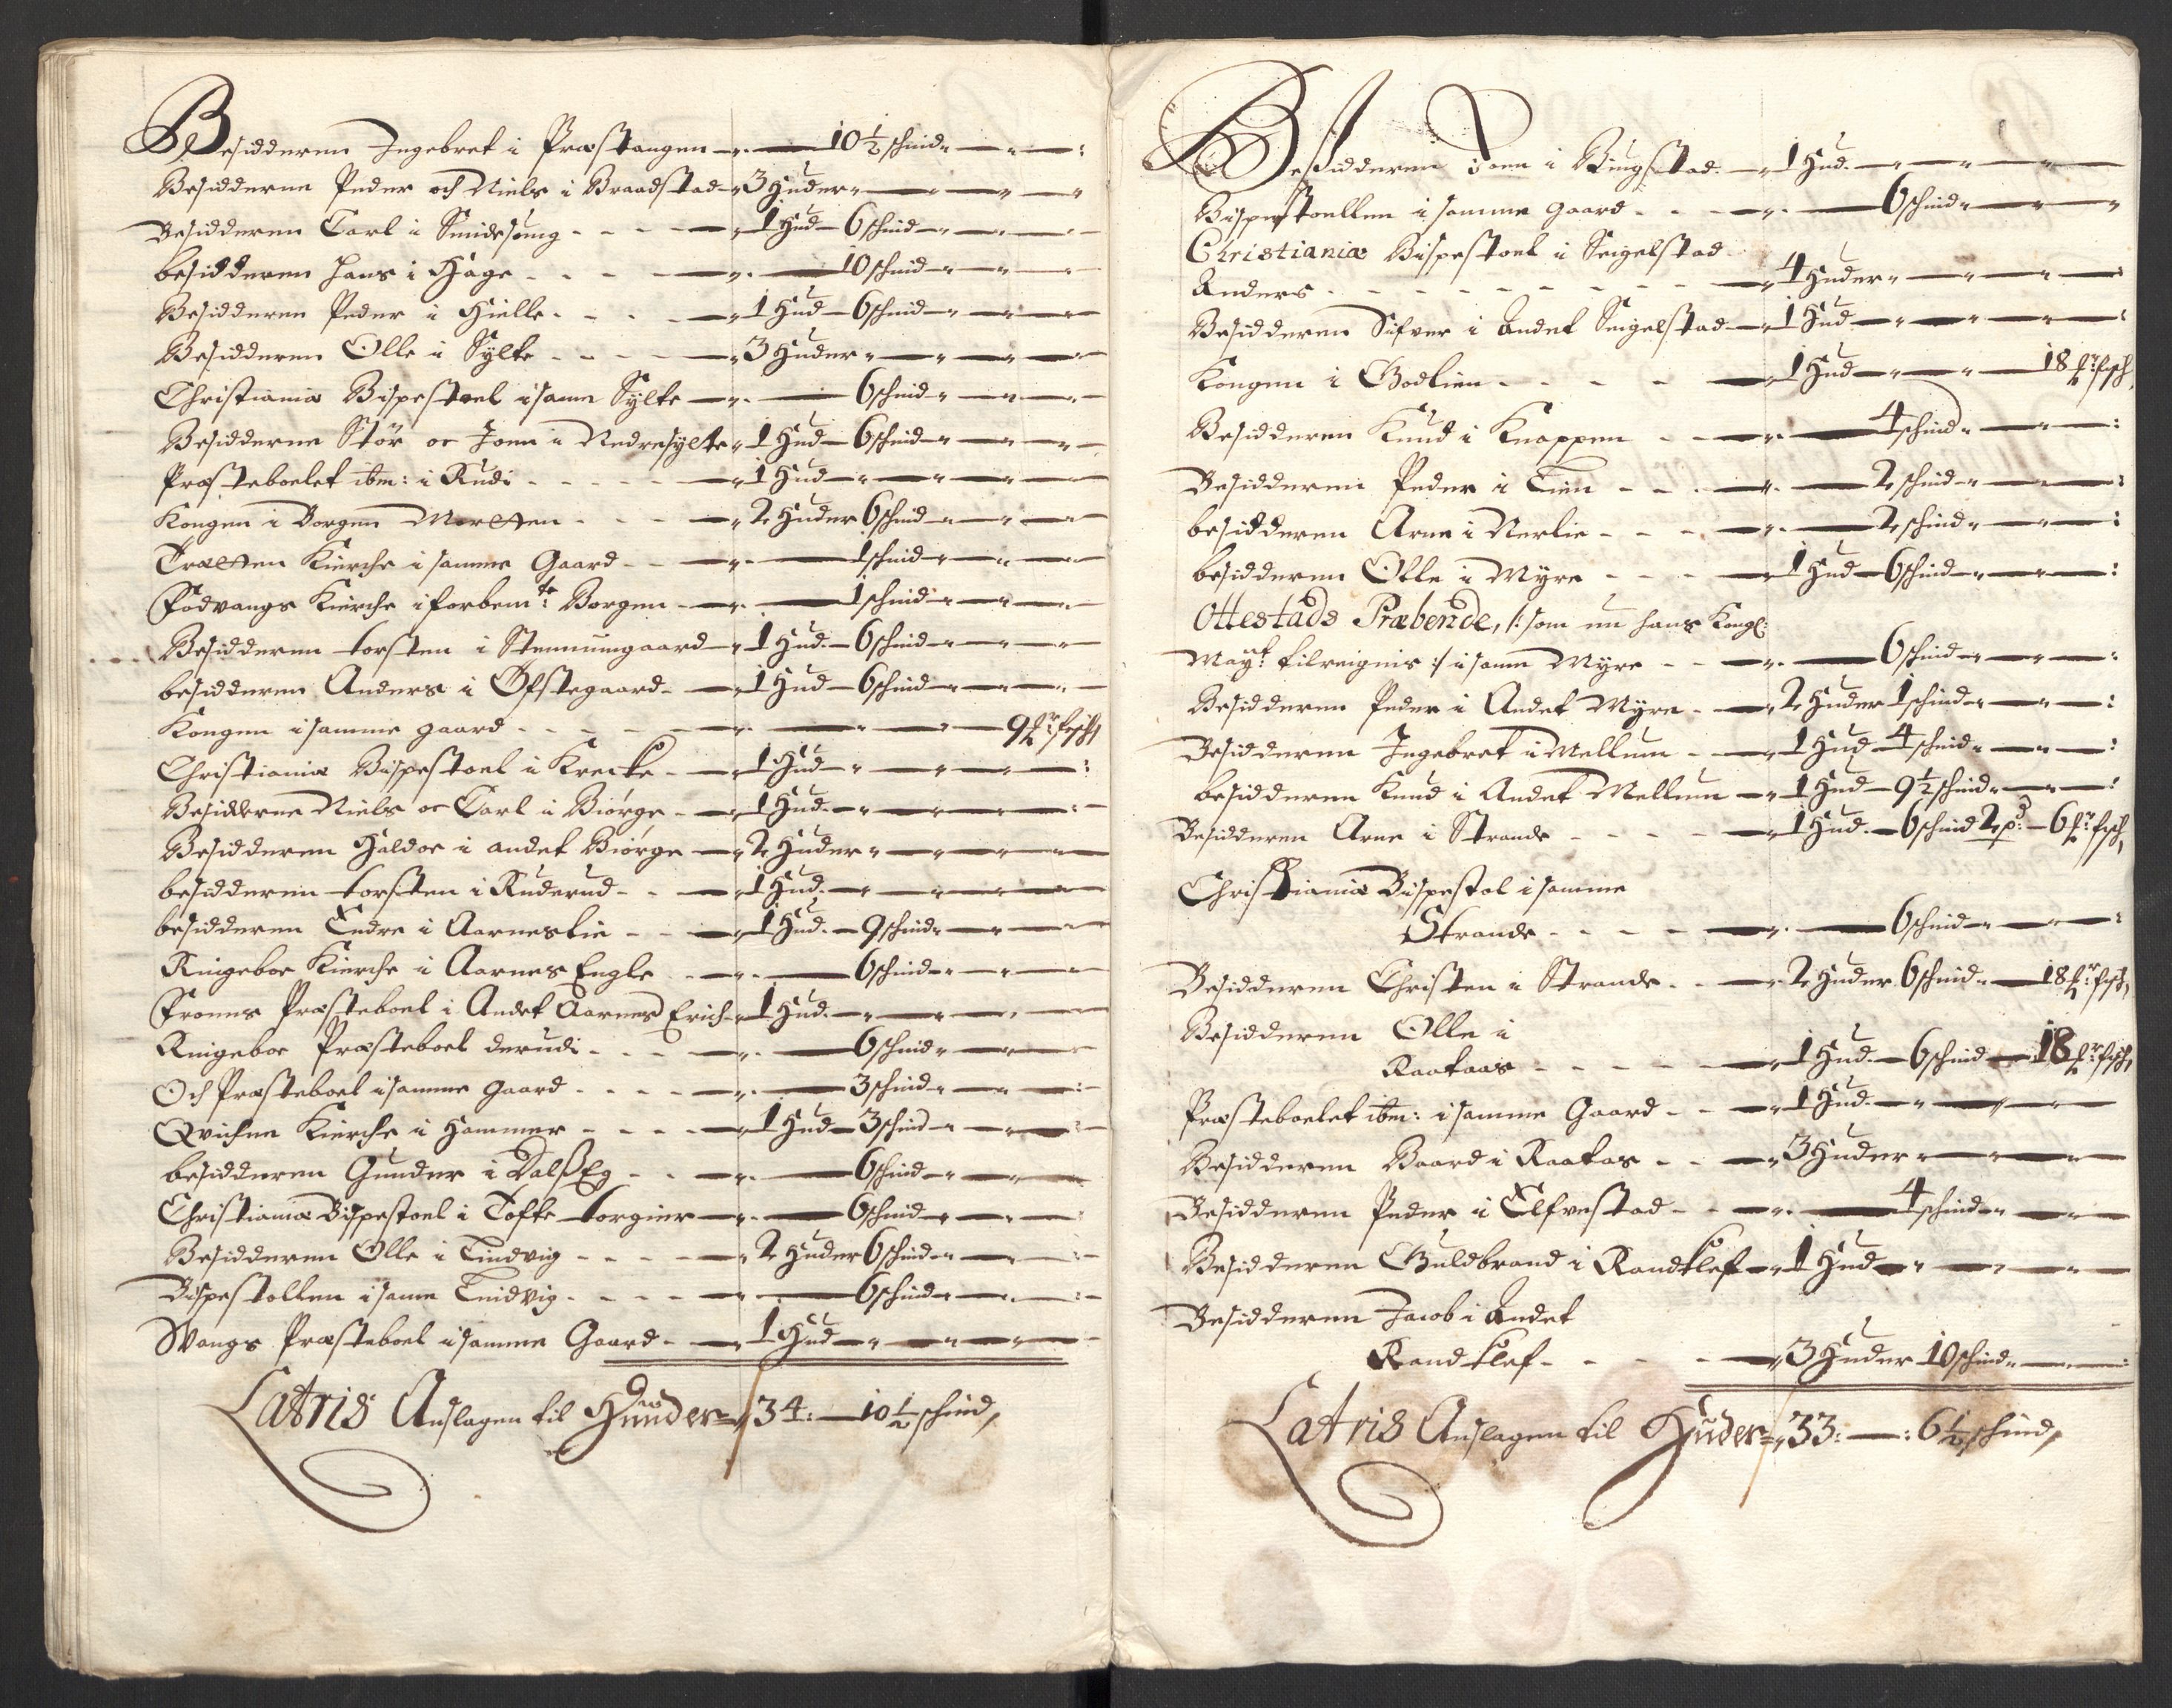 Besidderen Ingebret i Præstangen — 10½ schind
Besidderne Peder och Niels i Braadstad — 3 Huder
Besidderen Carl i Smidesøng — 1 Hud — 6 schind
besidderen Hans i Hage — 10 schind
Besidderen Peder i Hielle — 1 Hud — 6 schind
Besidderen Olle i Sylte — 3 Huder
Christiania Bispestoel i samme Sylte — 6 schind
Besidderne Stör oc Jonn i Nedresylte — 1 Hud — 6 schind
Præsteboelet ibm: i Rudi — 1 Hud
Kongen i Borgen Morten — 2 Huder 6 schind
Trætten Kierche i samme Gaard — 1 schind
Fodvangs Kierche i forbemte: Borgen — 1 schind
Besidderen torsten i Stennumgaard — 1 Hud — 6 schind
besidderen Anders i Øfstegaard — 1 Hud — 6 schind
Kongen i samme gaard — 9 fisch
Christiania Bispestoel i Krecke — 1 Hud
Besidderne Niels oc Carl i Biörge — 1 Hud
Besidderen Haldor i andet Biörge — 2 Huder
besidderen torsten i Ruderud — 1 Hud
besidderen Endre i Aarneslie — 1 Hud — 9 schind
Ringeboe Kierche i Aarnes Engle — 6 schind
Froens Præsteboel i Andet Aarnes Erich — 1 Hud
Ringeboe Præsteboel derudi — 6 schind
Och Præsteboel i samme gaard — 3 schind
Qvichne Kierche i Hammer — 1 Hud — 3 schind
besidderen Gunder i Dalß Eg — 6 schind
Christiania Bispestoel i Tofte torgier — 6 schind
Besidderen Olle i Lindvig — 2 Huder 6 schind
Bispestollen i samme Lindvig — 6 schind
Wangs Præsteboel i samme Gaard — 1 Hud
Latris Anslagen til Hunder 34: — 10½ schind
Besidderen Joen i Ringstad — 1 Hud
Bispestoellen i samme gaard — 6 schind
Christiania Bispestoel i Seigelstad
Anders — 4 Huder
Besidderen Sifver i Andet Seigelstad — 1 Hud
Kongen i Bodlien — 1 Hud — 18 fisch
Besidderen Knud i Knappen — 4 schind
Besidderen Peder i Lien — 2 schind
besidderen Arne i Nerlie — 2 schind
besidderen Olle i Myre — 1 Hud — 6 schind
Ottestads Præbende, /: som nu hans Kongl:
Mayt. tilreignis :/ i samme Myre — 6 schind
Besidderen Peder i Andet Myre — 2 Huder 1 schind
Besidderen Ingebret i Mellum — 1 Hud — 4 schind
besidderen Knud i Andet Mellum — 1 Hud — 9½ schind
Besidderen Arne i Strande — 1 Hud — 6 schind 2 pd: — 6 fisch
Christiania Bispestol i samme
Strande — 6 schind
Besidderen Christen i Strande — 2 Huder 6 schind — 18 fisch
Besidderen Olle i
Raataas — 1 Hud — 6 schind — 18 fisch
Præsteboelet ibm: i samme Gaard — 1 Hud
Besidderen Baard i Raatas — 3 Huder
Besidderen Peder i Elfvestad — 4 schind
Besidderen Guldbrand i Randklef — 1 Hud
Besidderen Jacob i Andet
Randklef — 3 Huder 10 schind
Latris Anslagen til Huder 33: — : 6½ schind